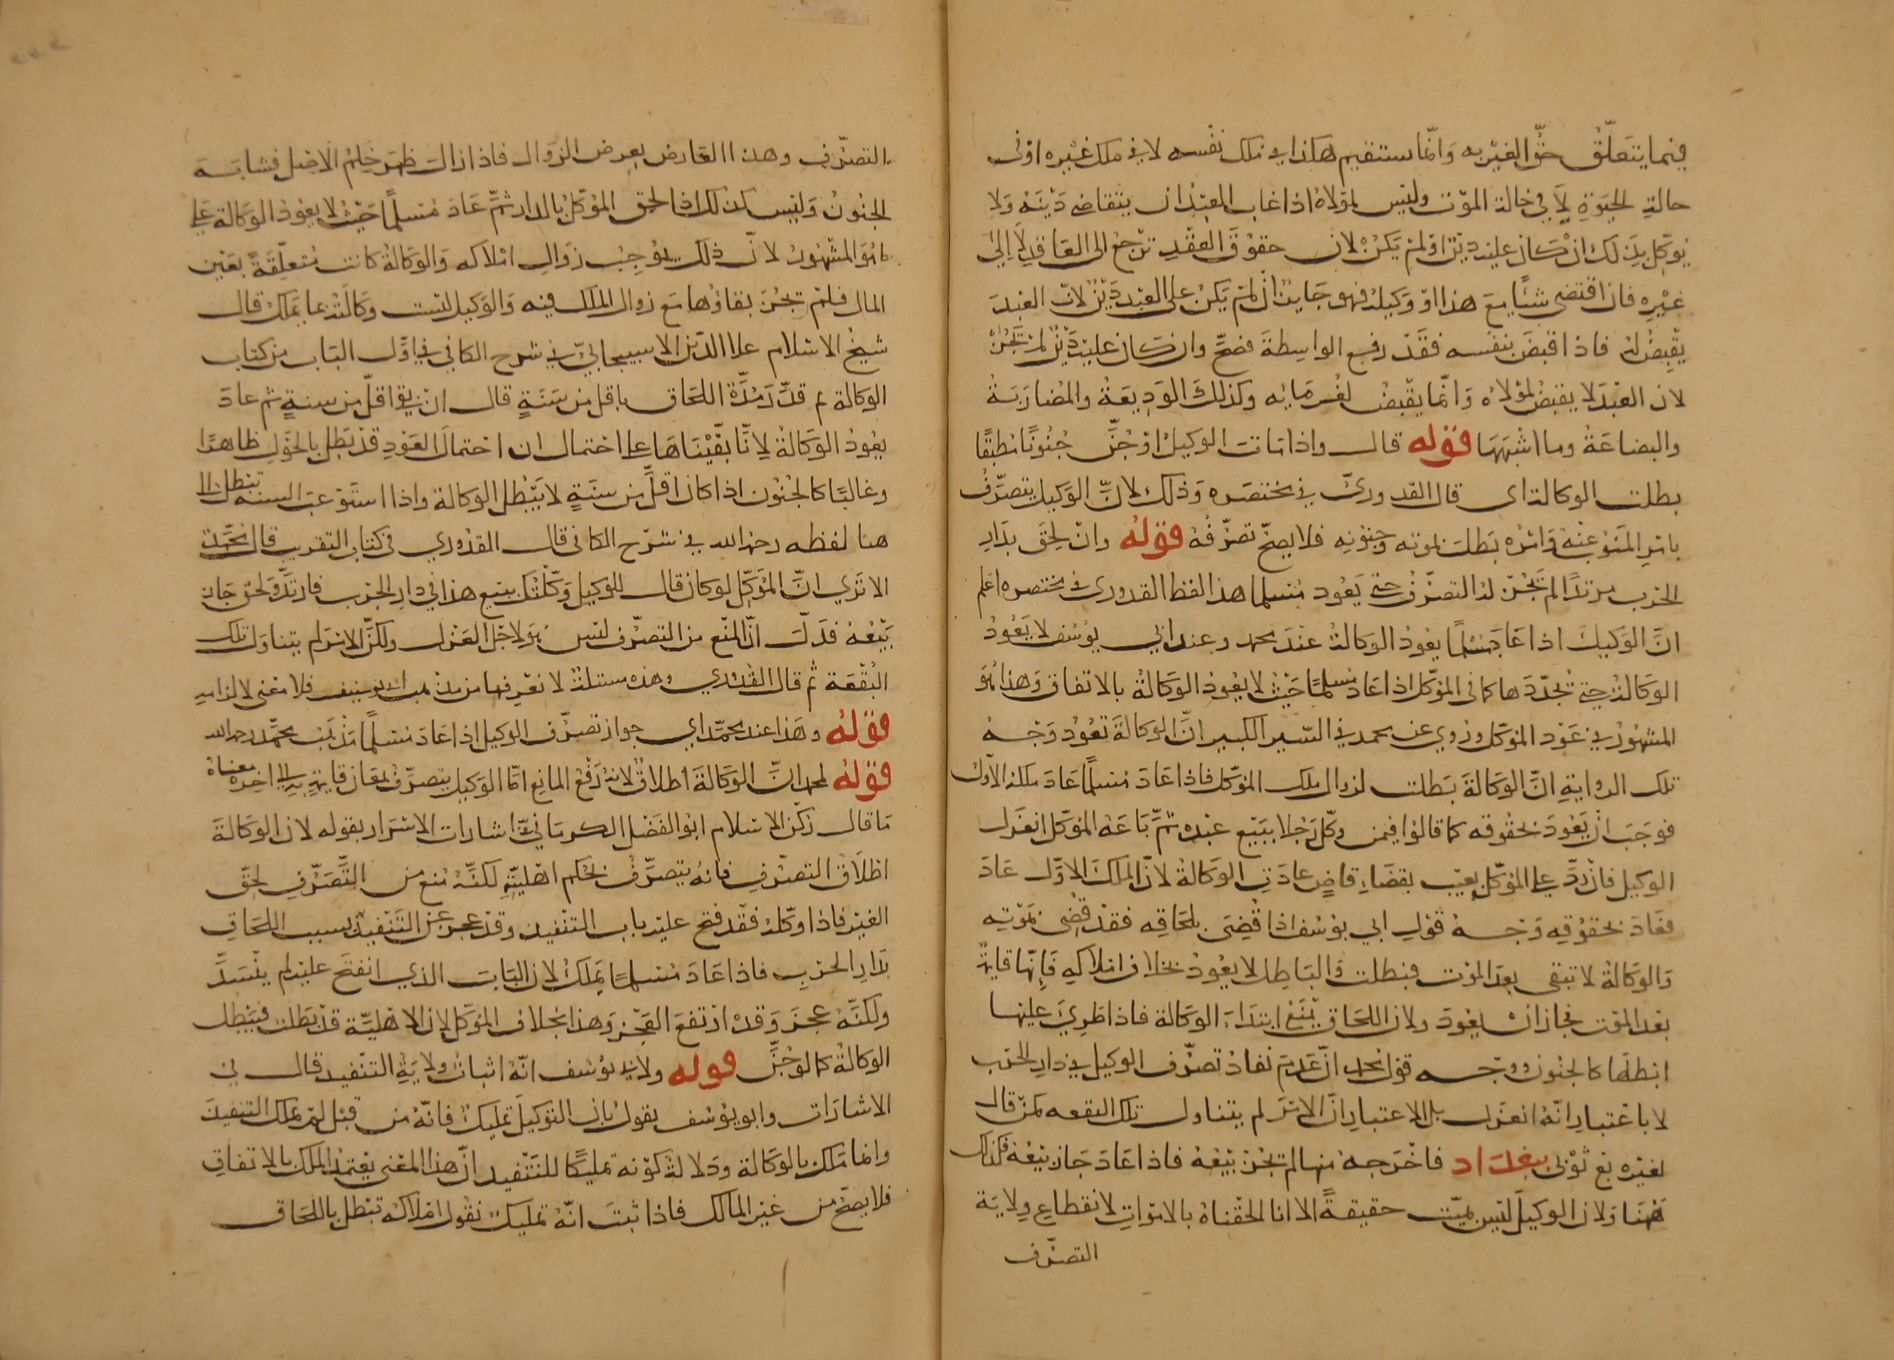 فيما يتعلق حق الغير به وانما يستقيم هكذا في ملك نفسه لا في ملك غيره او في
حالة الحيوة لا في حالة الموت وليس لمولاه اذا غاب العبد ان يتقاضى دينه ولا
يوكل بذلك ان كان عليه دين او لم يكن لان حقوق العقد ترجع الى العاقد لا الى
غيره فان اقتضى شيئا مع هذا او وكيله فهو جايز ان لم يكن على العبد دين لان العبد
يقبض له فاذا قبض بنفسه فقد رفع الواسطة فصح وان كان عليه دين لم يجز
لان العبد لا يقبض لمولاه وانما يقبض لغرمايه وكذلك الوديعة والمضاربة
والبضاعة وما اشبهها قوله قال واذا مات الوكيل او جن جنونا مطبقا
بطلت الوكالة اي قال القدوري في مختصره وذلك لان الوكيل يتصرف
بامر المنوب عنه وامره بطلت بموته وجنونه فلا يصح تصرفه قوله وان لحق بدار
الحرب مرتدا لم يجز له التصرف حتى يعود مسلما هذا لفظ القدوري في مختصره اعلم
ان الوكيل اذا عاد مسلما يعود الوكالة عند محمد وعند ابي يوسف لا يعود
الوكالة حتى تجددها كما في الموكل اذا عاد مسلما حيث لا يعود الوكالة بالاتفاق وهذا هو
المشهور في عود الموكل وروي عن محمد في السير الكبير ان الوكالة تعود وجه
تلك الرواية ان الوكالة بطلت لزوال ملك الموكل فاذا عاد مسلما عاد ملكه الاول
فوجب ان يعود بحقوقه كما قالوا فيمن وكل رجلا ببيع عبده ثم باعه الموكل انعزل
الوكيل فان رد على الموكل بعيب بقضاء قاض عادت الوكالة لان الملك الاول عاد
فعاد بحقوقه وجه قول ابي يوسف اذا قضى بلحاقه فقد قضى بموته
والوكالة لا تبقى بعد الموت فبطلت والباطل لا يعود بخلاف املاكه فانها قايمة
بعد الموت فجاز ان يعود ولان اللحاق يمنع ابتداء الوكالة فاذا طرئ عليها
ابطلها كالجنون وجه قول محمد ان عدم نفاذ تصرف الوكيل في دار الحرب
لا باعتبار انه انعزل بل لاعتبار ان الامر لم يتناول تلك البقعه كمن قال
لغيره بع ثوبي ببغداد فاخرجه منها لم يجز بيعه فاذا عاد جاز بيعه فكذلك
ههنا ولان الوكيل ليس بميت حقيقة الا انا الحقناه بالاموات لانقطاع ولاية
التصرف
التصرف وهذا العارض بعرض الزوال فاذا زالت ظهر حكم الاصل فشابه
الجنون وليس كذلك اذا لحق الموكل بالدار ثم عاد مسلما حيث لا يعود الوكالة على
ما هو المشهور لان ذلك يوجب زوال املاكه والوكالة كانت متعلقة بعين
المال فلم يجز بقاؤها مع زوال الملك فيه والوكيل ليست وكالته بما يملك قال
شيخ الاسلام علا الدين الاسبيجابي في شرح الكافي في اول الباب من كتاب
الوكالة ثم قدر مدة اللحاق باقل من سنة قال ان بقي اقل من سنة ثم عاد
يعود الوكالة لانا بقيناها على احتمال ان احتمال العود قد بطل بالحول ظاهرا
وغالبا كالجنون اذا كان اقل من سنة لا يبطل الوكالة واذا استوعب السنة تبطل الى
هنا لفظه رحمه الله في شرح الكافي قال القدوري في كتاب التقريب قال محمد
الا ترى ان الموكل لو كان قال للوكيل وكلتك ببيع هذا في دار الحرب فارتد ولحق جاز
بيعه فدل ان المنع من التصرف ليس هو لاجل العزل ولكن الامر لم يتناول تلك
البقعة ثم قال القدوري وهذه مسئلة لا نعرفها من مذهب ابي يوسف فلا معنى لالزامه
قوله وهذا عند محمد اي جواز تصرف الوكيل اذا عاد مسلما مذهب محمد رحمه الله
قوله لمحمد ان الوكالة اطلاق لانه رفع المانع اما الوكيل يتصرف بمعان قايمة به الى اخره معناه
ما قال ركن الاسلام ابو الفضل الكرماني في اشارات الاسرار بقوله لان الوكالة
اطلاق التصرف فانه يتصرف بحكم اهليته لكنه منع من التصرف لحق
الغير فاذا وكله فقد فتح عليه باب التنفيد وقد عجز عن التنفيد بسبب اللحاق
بدار الحرب فاذا عاد مسلما يملك لان الباب الذي انفتح عليه لم ينسد
ولكنه عجز وقد ارتفع العجز وهذا بخلاف الموكل لان الاهلية قد بطلت فيبطل
الوكالة كما لو جن قوله ولابي يوسف انه اثبات ولاية التنفيد قال في
الاشارات وابو يوسف يقول بان التوكيل تمليك فانه من قبل لم يملك التنفيد
وانما ملك بالوكالة ودلالة كونه تمليكا للتنفيد ان هذا المعنى يعتمد الملك بالاتفاق
فلا يصح من غير المالك فاذا ثبت انه تمليك نقول املاكه تبطل باللحاق